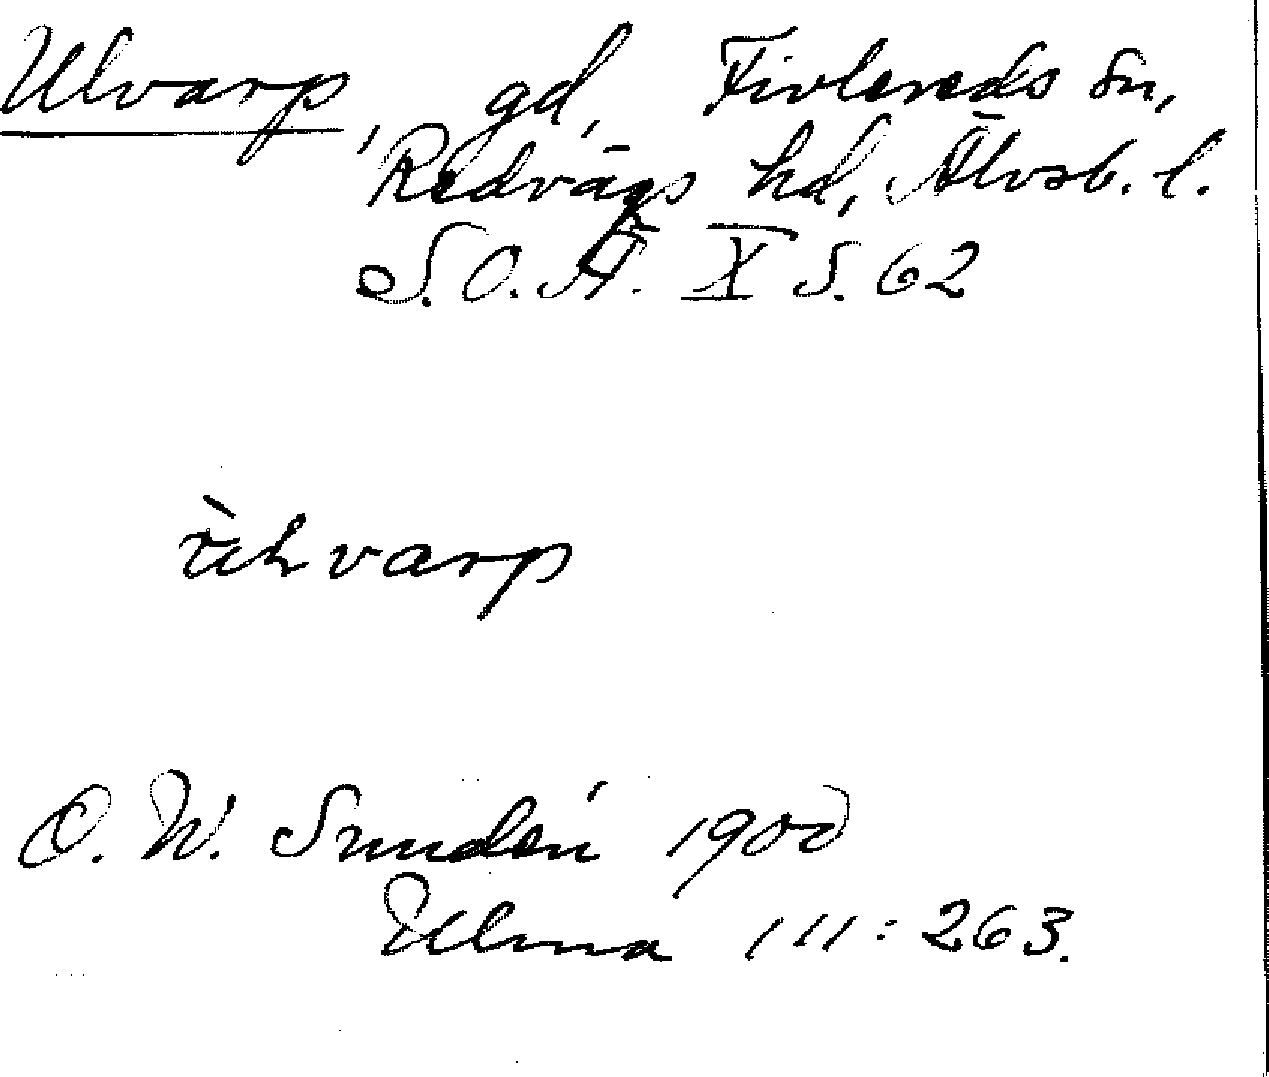 Ulvarp, gd, Finlereds Sn,
Redvägs hd, Älvsb. l.
S.O.Ä. X S. 62
O. W. Sundén 1900
Ulma 111:263.